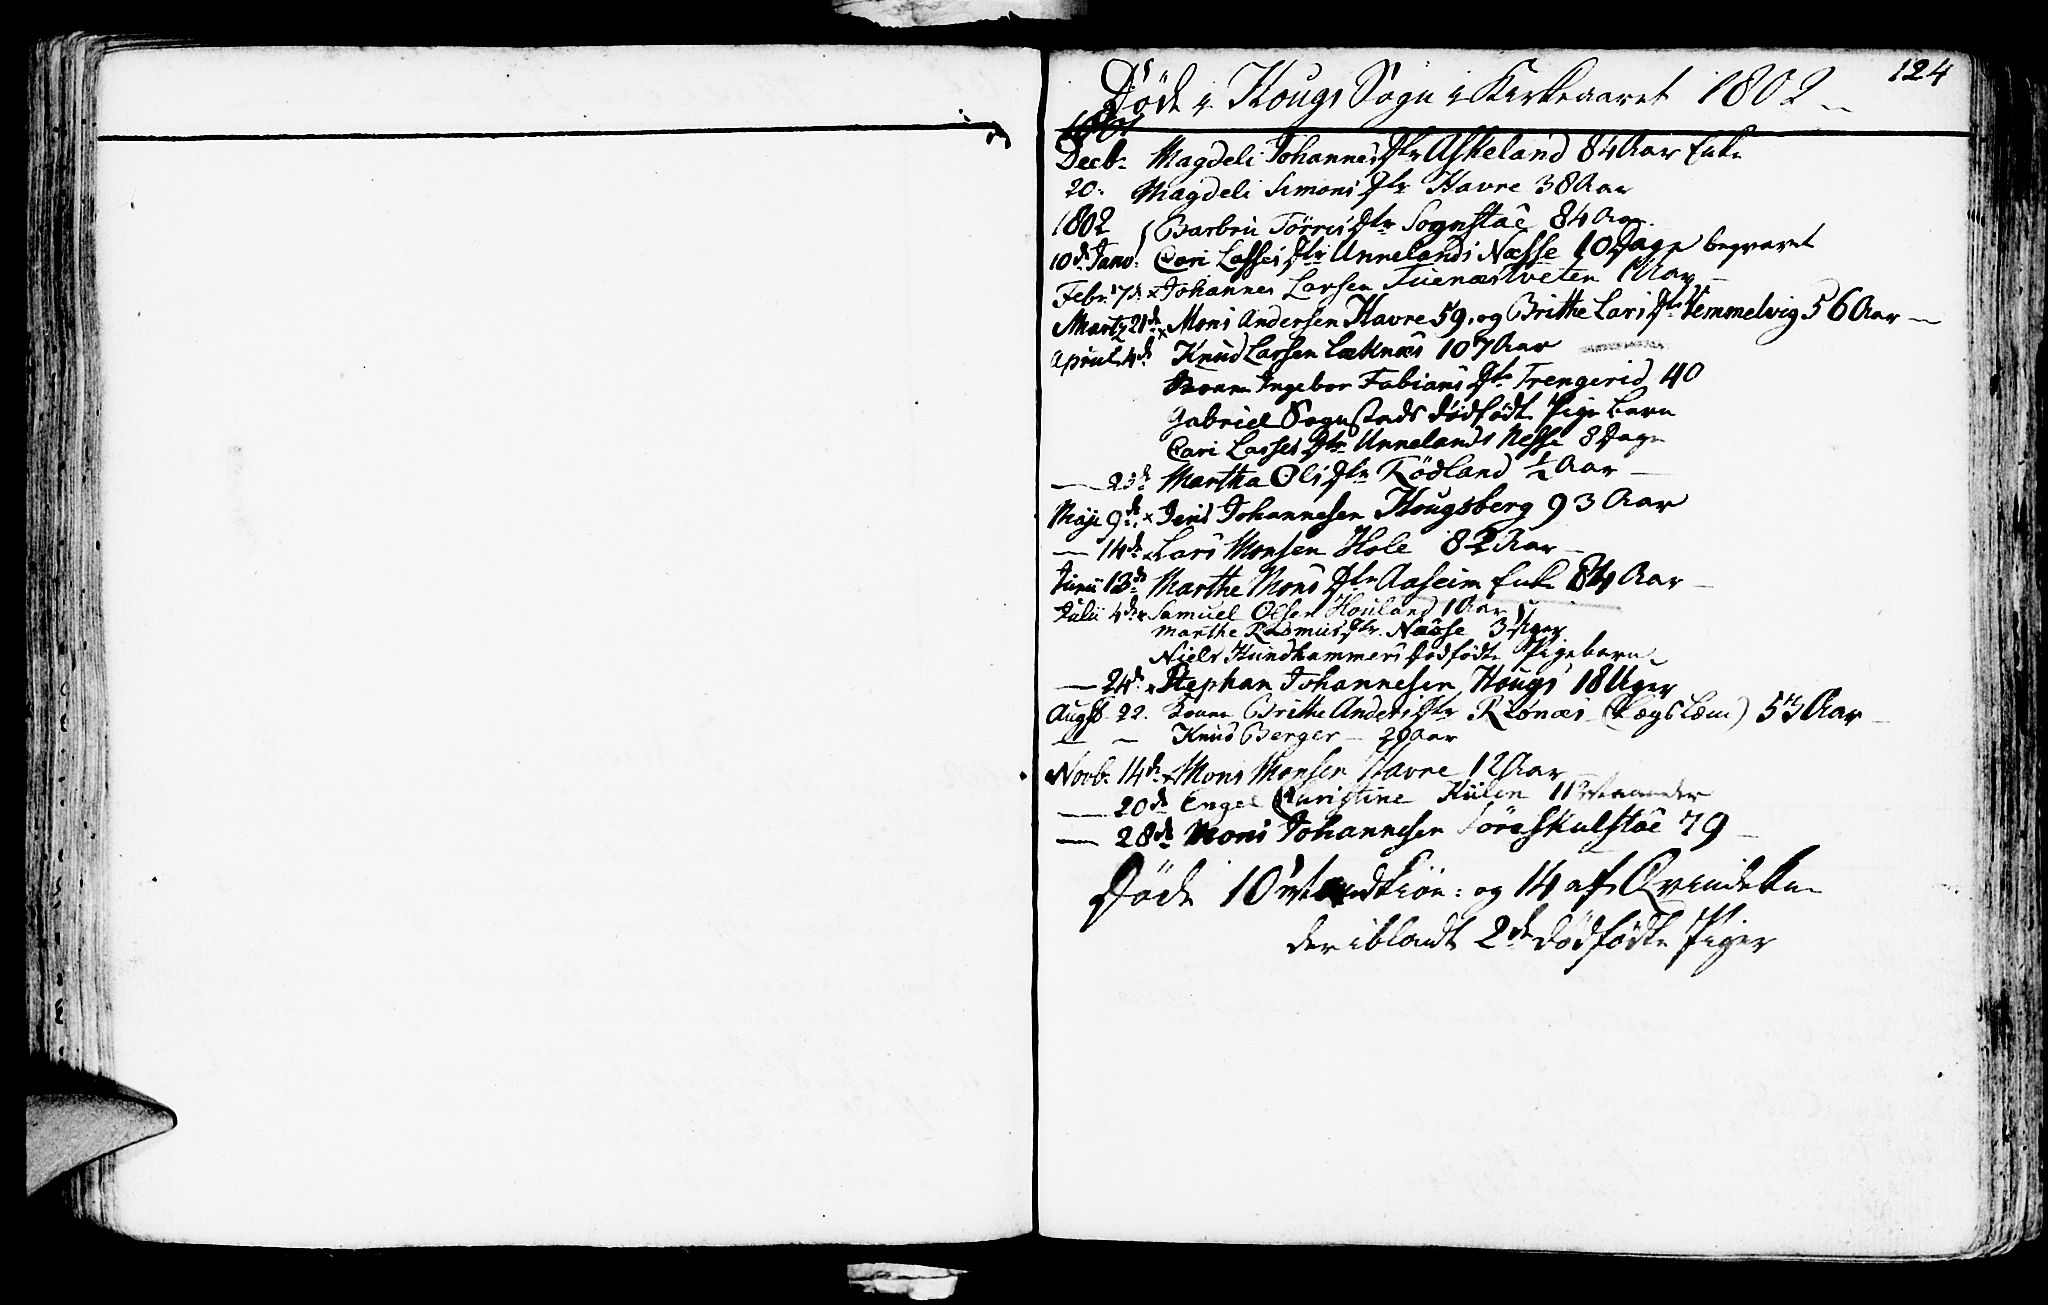 124
Døde i Hougs Sogn i Kirkeaaret 1802
1801
Decb: Magdeli Johannes Dtr Askeland 84 Aar Enke
20: Magdeli Simons Dtr Havre 38 Aar
1802 Barbru Törris Dtr Sognstae 84 Aar
10de Janv: Cari Lasses Dtr Unnelands Næsse 10 Dage begravet
Febr: 7de x Johannes Larsen Tuenæstveten 1 Aar
Martz 21de x Mons Andersen Havre 59, og Brithe Lars Dtr Vemmelvig 56 Aar
Apriil 4de Knud Larsen Læknæs 107 Aar
Konen Ingebor Fabians Dtr Trengerid 40
Gabriel Sognstads dödfödt Pige barn
Cari Lasses Dtr Unnelands Nesse 8 Dage
Martha Ols Dtr Rödland ½ Aar
Maji 9de x Jens Johannesen Hougsberg 93 Aar
14de x Lars Monsen Hole 82 Aar
Junii 13de Marthe Mons Dtr Aaseim Enke 84 Aar
Julii 4de x Samuel Olsen Houland 1 Aar
Marthe Rasmus Dtr. Næsse 3 Uger
Niels Kundhammers dödfödte Pigebarn
24de x Stephan Johannesen Hougs 18 Uger
Augst. 22. Konen Brithe Anders Dtr Risnæs (Lægslæm) 53 Aar
Knud Berger 29 Aar
Novb: 14de x Mons Monsen Havre 12 Aar
20de Engel Christine Kulen 11 Maaneder
28de Mons Johannesen Töreskulstae 79
Døde 10 Mandkiön: og 14 af Qvindekn
der iblandt 2de dödfödte Piger